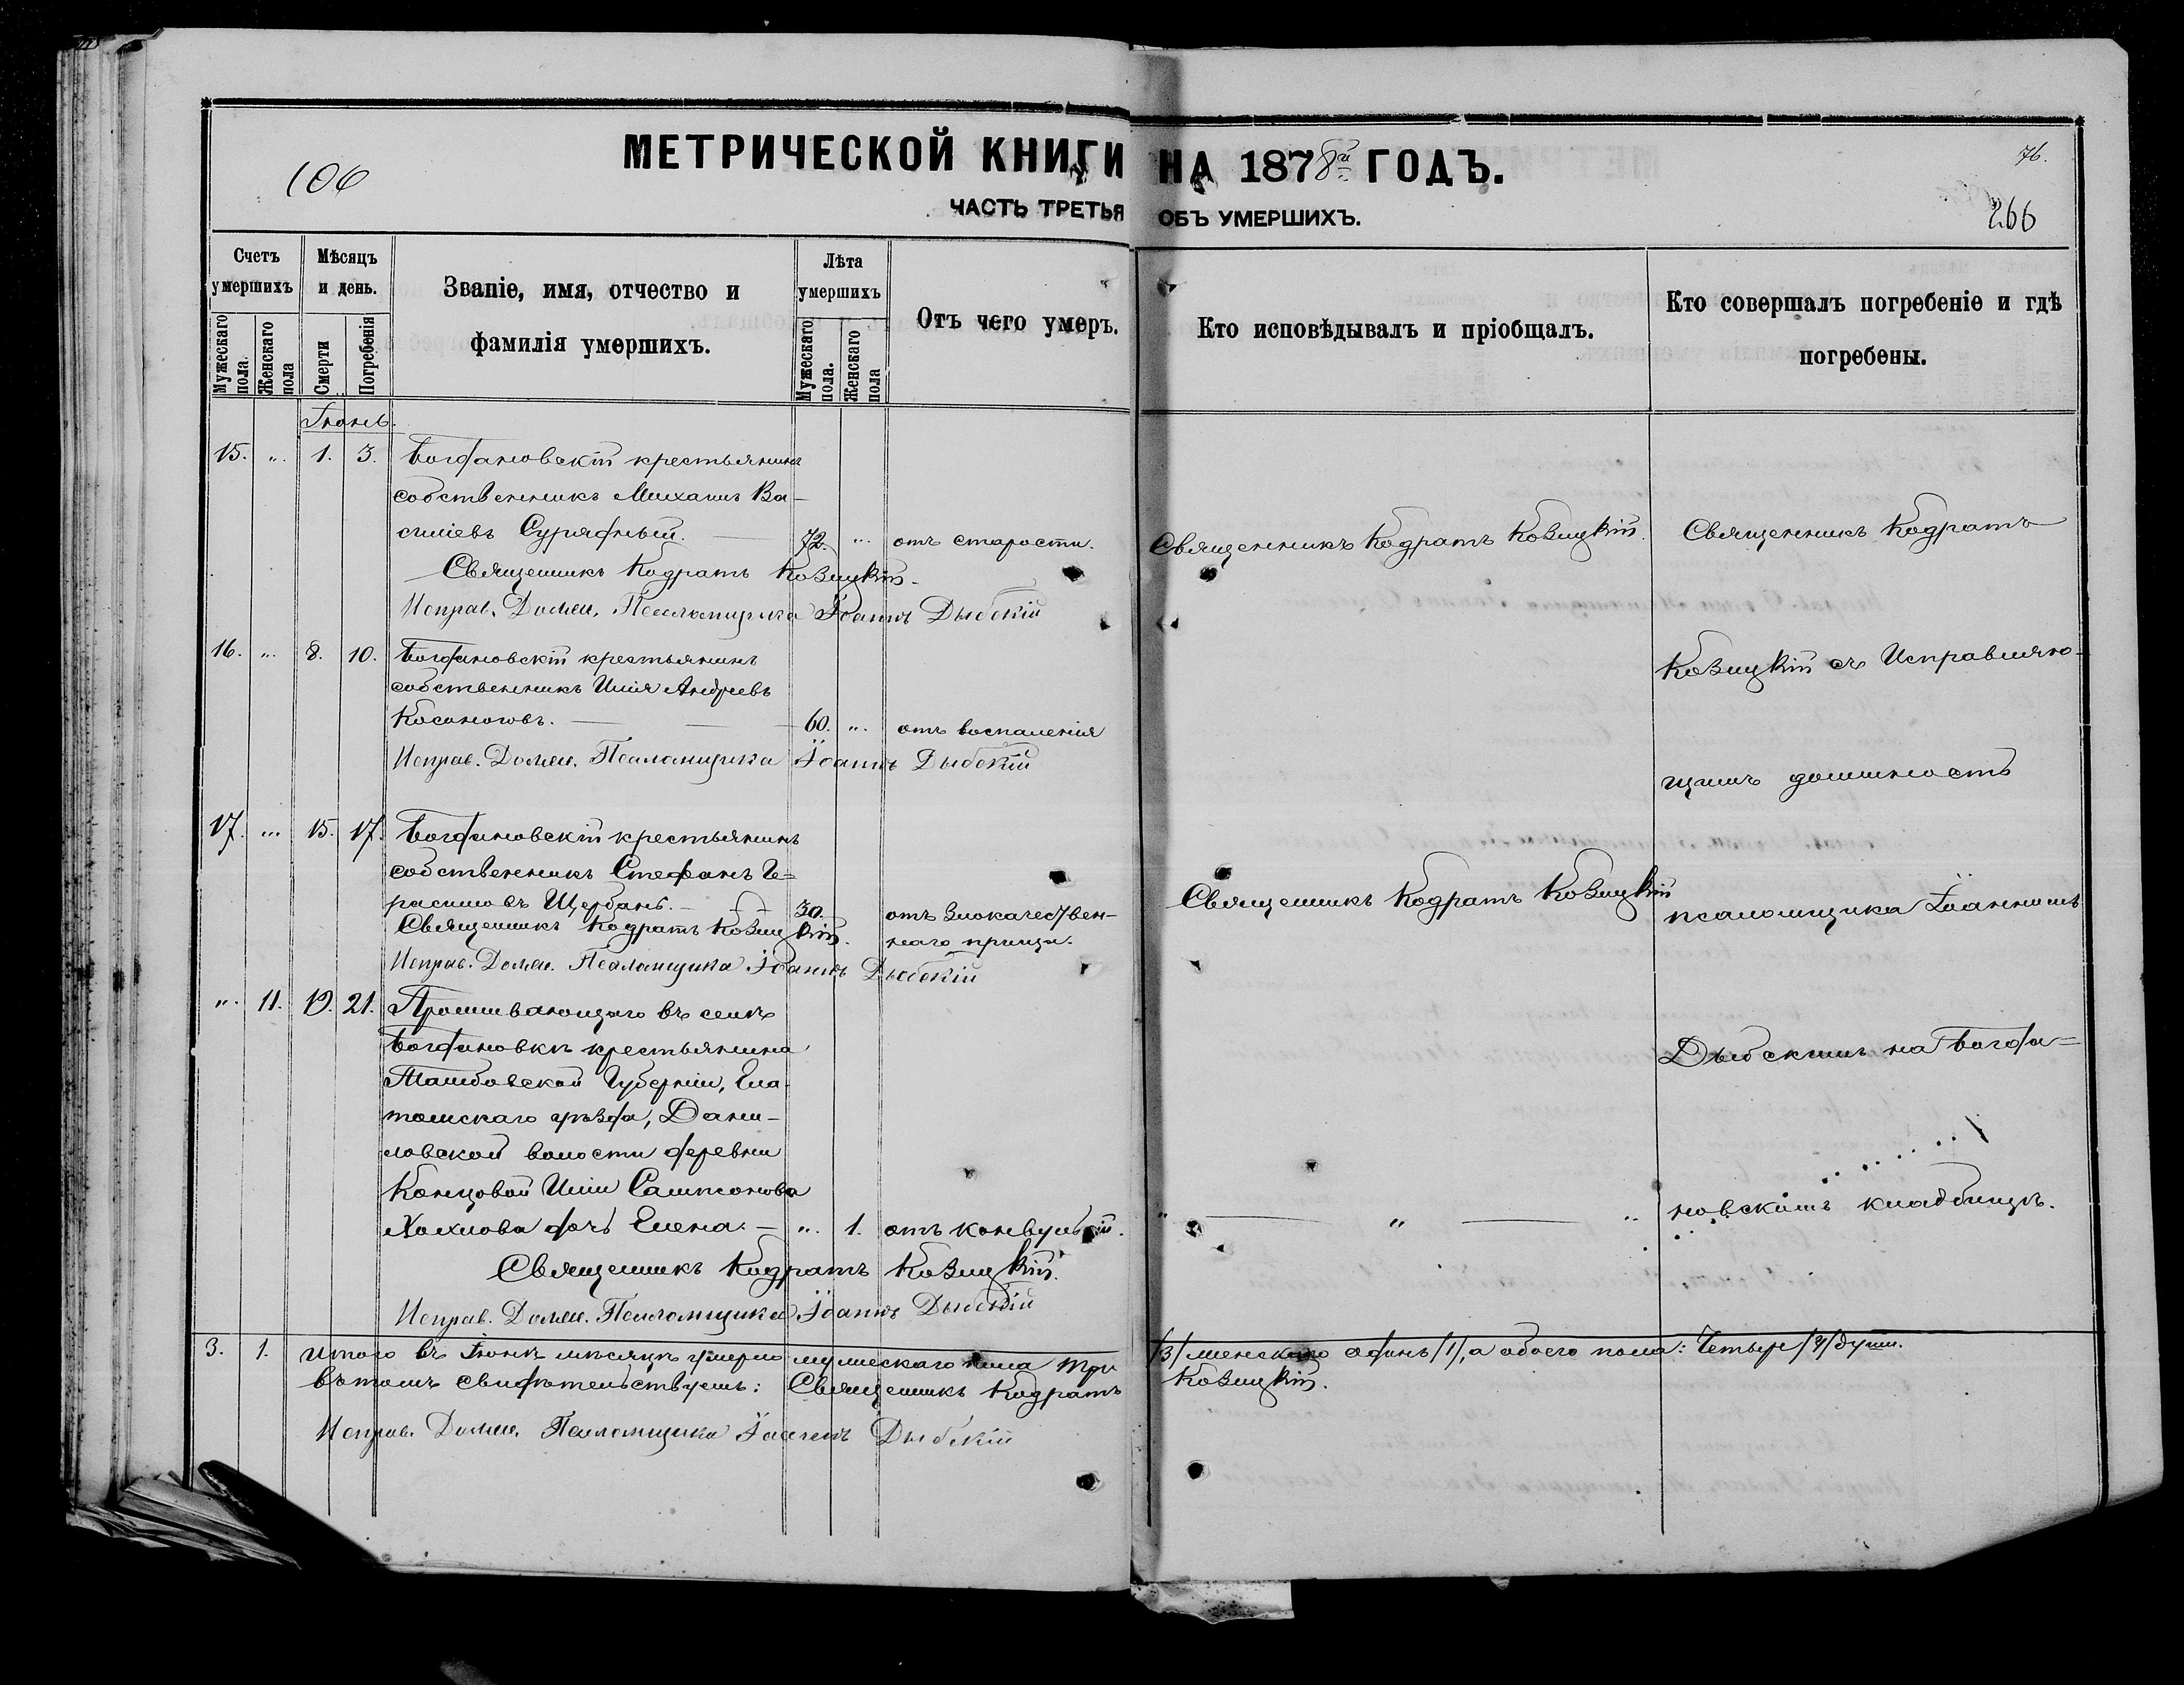 МЕТРИЧЕСКОЙ КНИГИ НА 1878й ГОДЪ.
106
76.
ЧАСТЬ ТРЕТЬЯ ОБЪ УМЕРШИХЪ.
266
Счетъ умершихъ
Мѣсяцъ и день.
Званіе, имя, отчество и фамилія умершихъ.
Лѣта умершихъ
Отъ чего умеръ.
Кто исповѣдывалъ и пріобщалъ.
Кто совершалъ погребеніе и гдѣ погребены.
Мужескаго пола.
Женскаго пола
Смерти
Погребенія
Мужескаго пола.
Женскаго пола
Іюнь.
15. „. 1. 3. Богдановскій крестьянинъ
собственникъ Михаилъ Ва-
силіевъ Сурядный. — 72. „. отъ старости. Священникъ Кодратъ Козицкій. Священникъ Кодратъ
Священникъ Кодратъ Козицкій.
Исправ. Должн. Псаломщика Іоаннъ Дыбскій
16. „. 8. 10. Богдановскій крестьянинъ
собственникъ Илія Андреевъ
Косоноговъ. — — 60. „. отъ воспаленія
Козицкій съ Исправляю-
Исправ. Должн. Псаломщика Іоаннъ Дыбскій
щимъ должность
17. „. 15. 17. Богдановскій крестьянинъ
собственникъ Стефанъ Ге=
расимовъ Щербань. — 30. отъ злокачествен-
наго прища.
Священникъ Кодратъ Козицкій
псаломщика Іоанномъ
Священникъ Кодратъ Козицкій.
Исправ. Должн. Псаломщика Іоаннъ Дыбскій
„. 11. 19. 21. Проживающаго въ селѣ
Богдановкѣ крестьянина
Тамбовской Губерніи, Ела-
томскаго уѣзда, Дани-
ловской волости деревни
Концовой Иліи Сампсонова
Холхлова дочь Елена. — „. 1. отъ конвульсій. „ — „ — „
Дыбскимъ на Богда=
новскомъ кладбищѣ.
Священникъ Кодратъ Козицкій.
Исправ. Должн. Псаломщика Іоаннъ Дыбскій
3. 1. Итого въ Іюнѣ мѣсяцѣ умерло мужескаго пола три /3/ женскаго одинъ /1/, а обоего пола: Четыре /4/ души.
Въ томъ свидѣтельствуемъ: Священникъ Кодратъ Козицкій.
Исправ. Должн. Псаломщика Іоаннъ Дыбскій